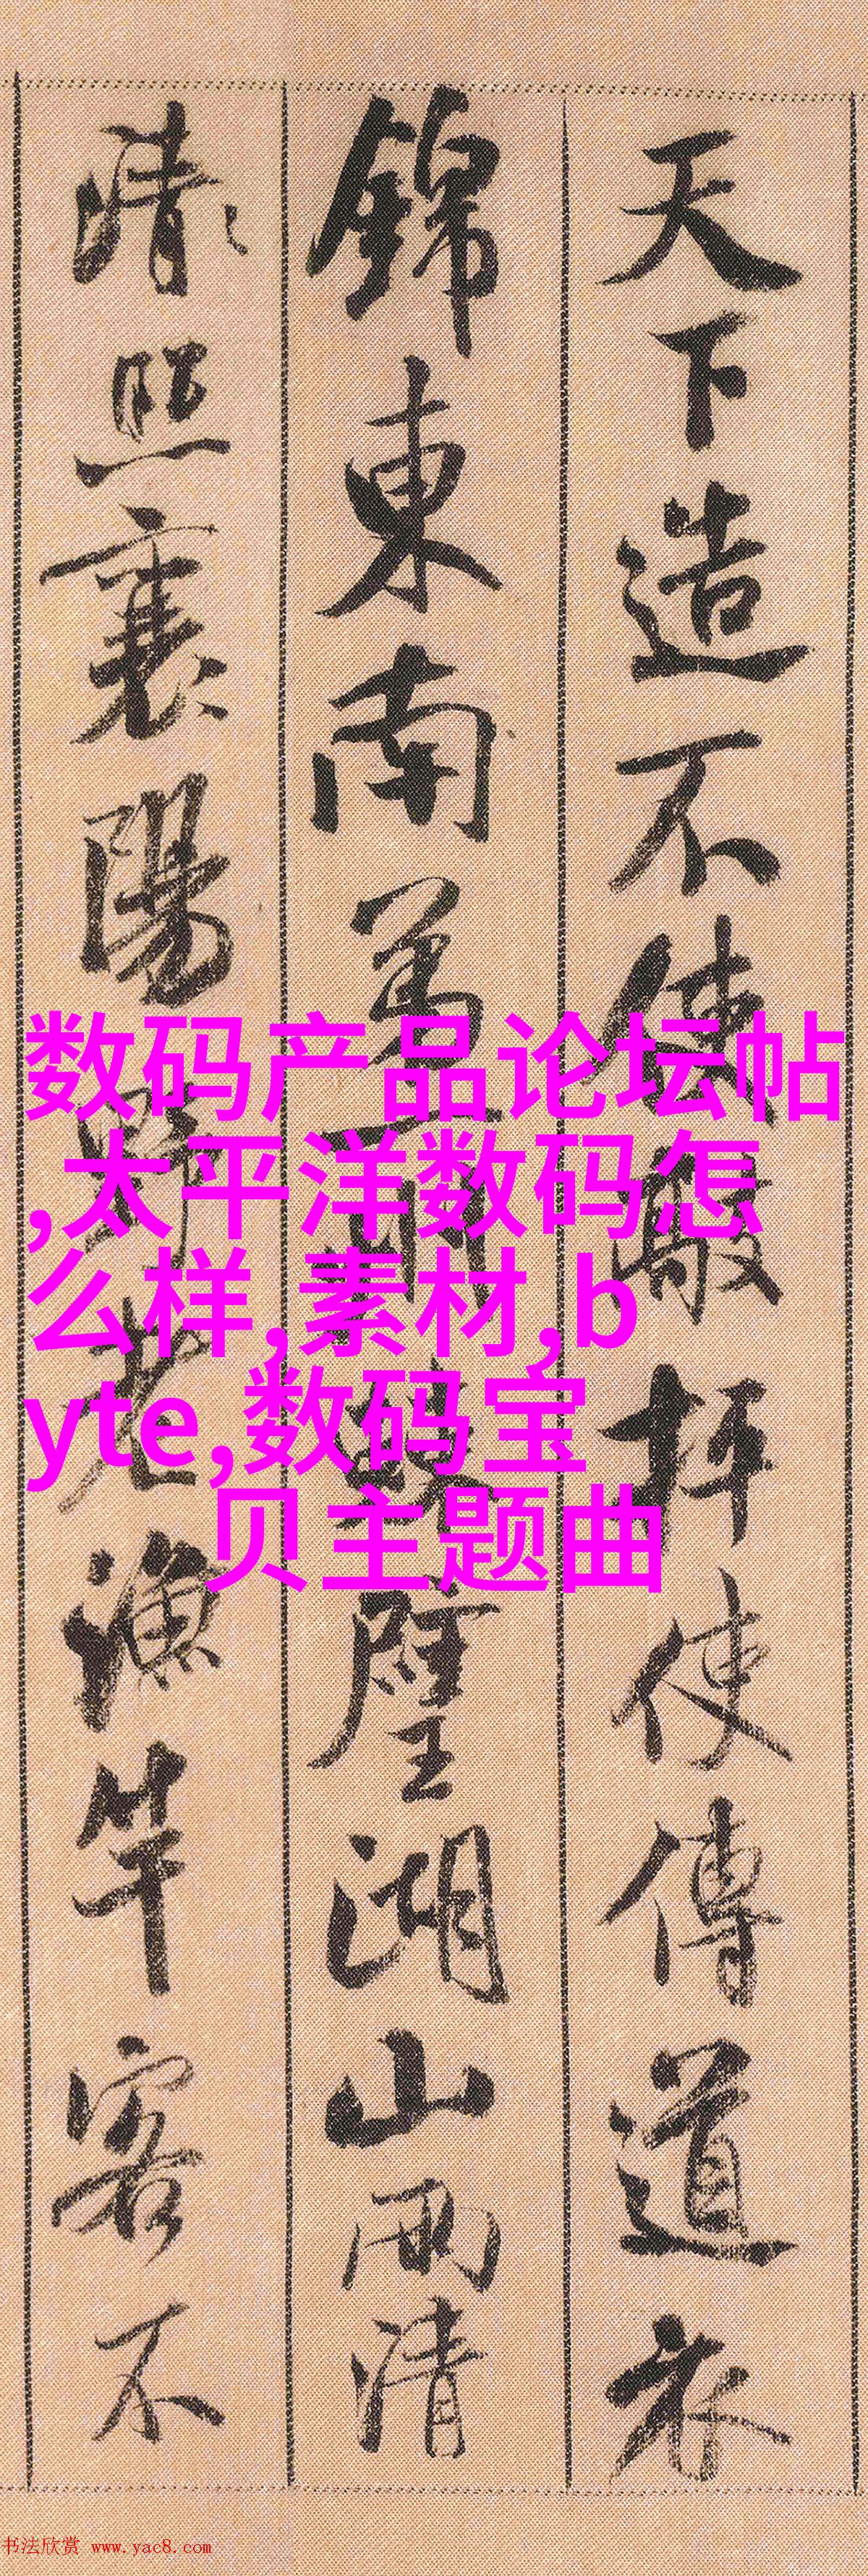 天下造不使敲枰使傳道衣
錦東南第一州棘璧湖山兩清
清照襄陽野老漁竿客不
数码产品论坛帖
,太平洋数码怎
么样,素材,b
yte,数码宝
贝主题曲
书法欣赏 www.yac8.com